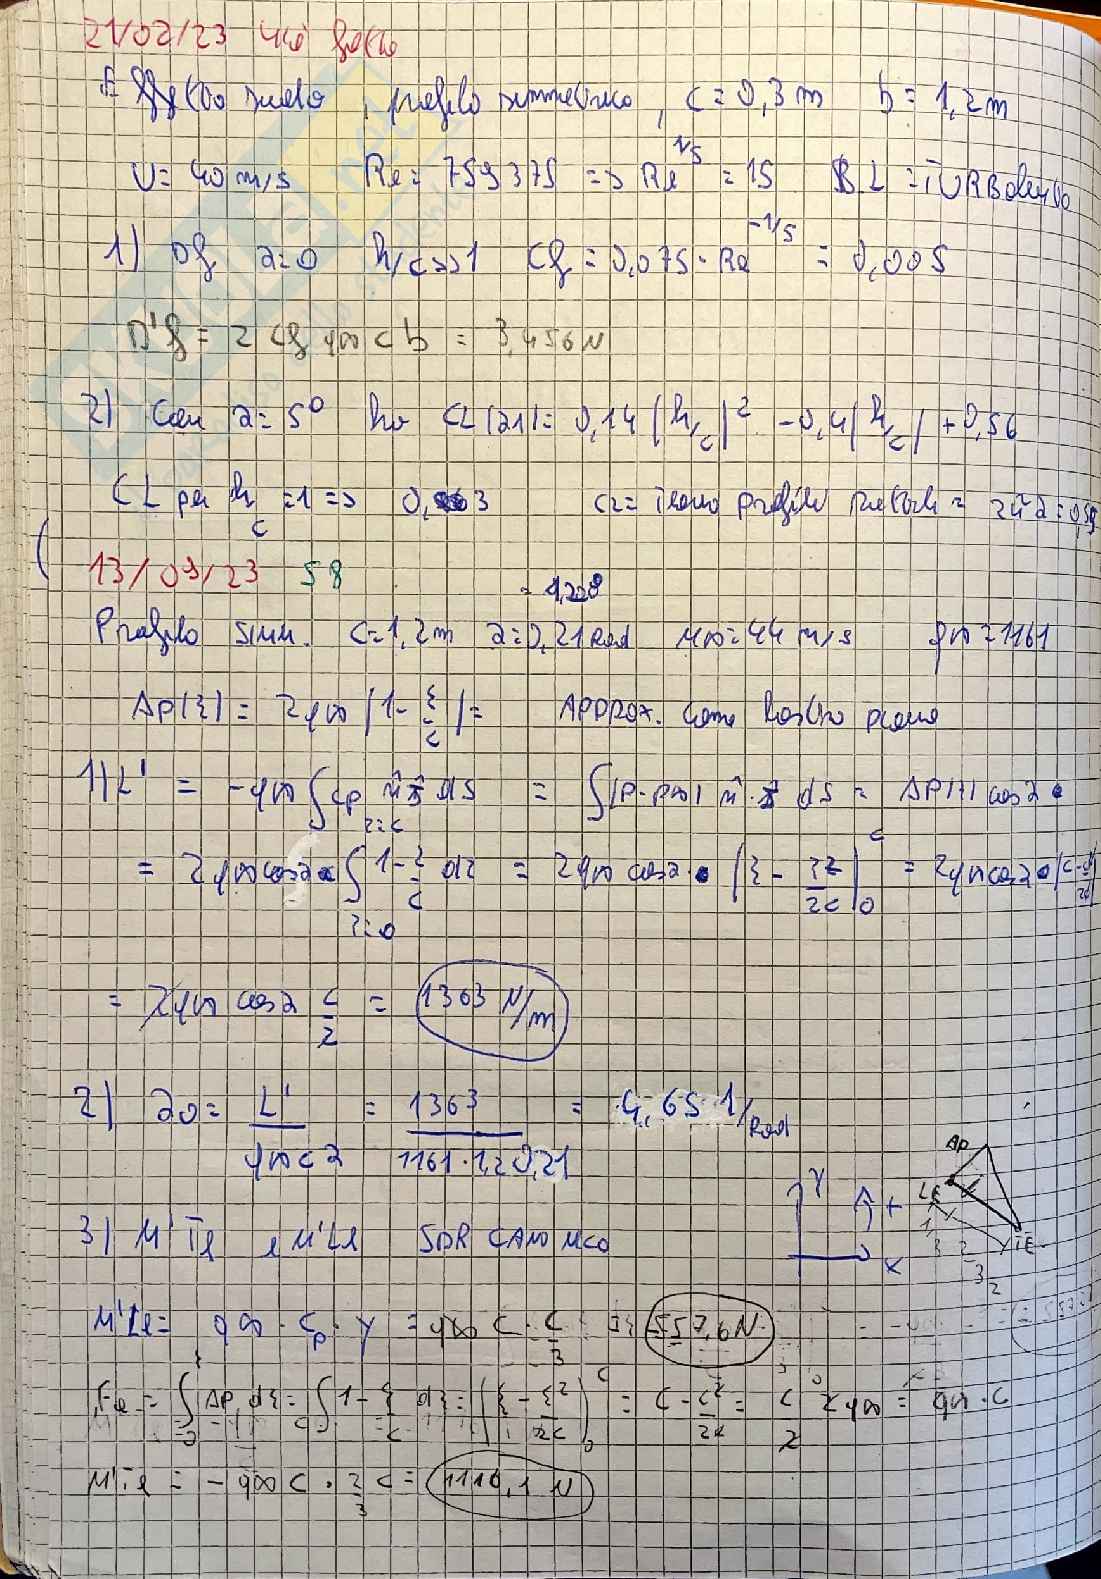 21/02/23
suolo, profilo simmetrico, c = 0,3 m b = 1,2 m
U = 40 m/s Re = 759375 => Re^1/5 = 15 BL = TURBolento
1) Df a=0 h/c>>1 Cf = 0,075 · Re^-1/5 = 0,005
D'f = 2 Cf q∞ c b = 3,456 N
2) Con a = 5° ho CL(a1) = 0,14 (h/c)^2 - 0,4 (h/c) + 0,56
CL per h/c = 1 => 0, 3 CL = profilo = 2π a = 0,55
13/09/23 58
= 1,208
Profilo simm. c = 1,2 m a = 0,21 Rad u∞ = 44 m/s q∞ = 1161
Δp(ξ) = 2q∞ (1 - ξ/c) = APPROX. come lastra piana
1) L' = -q∞ ∫ cp n̂ ds = ∫(p-p∞) n̂ · ds = ΔP( ) cos a ·
= 2q∞ cos a · ∫ 1 - ξ/c dξ = 2q∞ cos a · (ξ - ξ2/2c)|0 c = 2q∞ cos a · (c - c2/2c)
= 2q∞ cos a c/2 = 1363 N/m
2) a0 = L'/q∞ c a = 1363/1161 · 1,2 0,21 = 4,65 1/Rad
ΔP
LE
TE
Y
x
+
1/3
2/3
3) M'Te e M'Le SDR CANONICO
M'Le = q∞ · cp · y = q∞ c · c/3 = 557,6 N
= ∫ ΔP dξ = ∫ 1 - ξ/c dξ = (ξ - ξ^2/2c)|0 c = c - c^2/2c = c/2 2q∞ = q∞ · c
M'Te = - q∞ c · 2/3 c = 1116,1 N